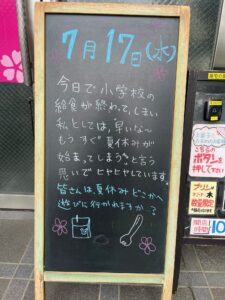 7月17日(水)
今日で小学校の
給食が終わって、しまい
私としては、早いな〜
もうすぐ夏休みが
始まってしまう〜と言う
思いでヒヤヒヤしています
皆さんは、夏休みどこかへ
遊びに行かれますか?
こちらの
ボタンを
押して下さい
プリン
数量限定
時間
10